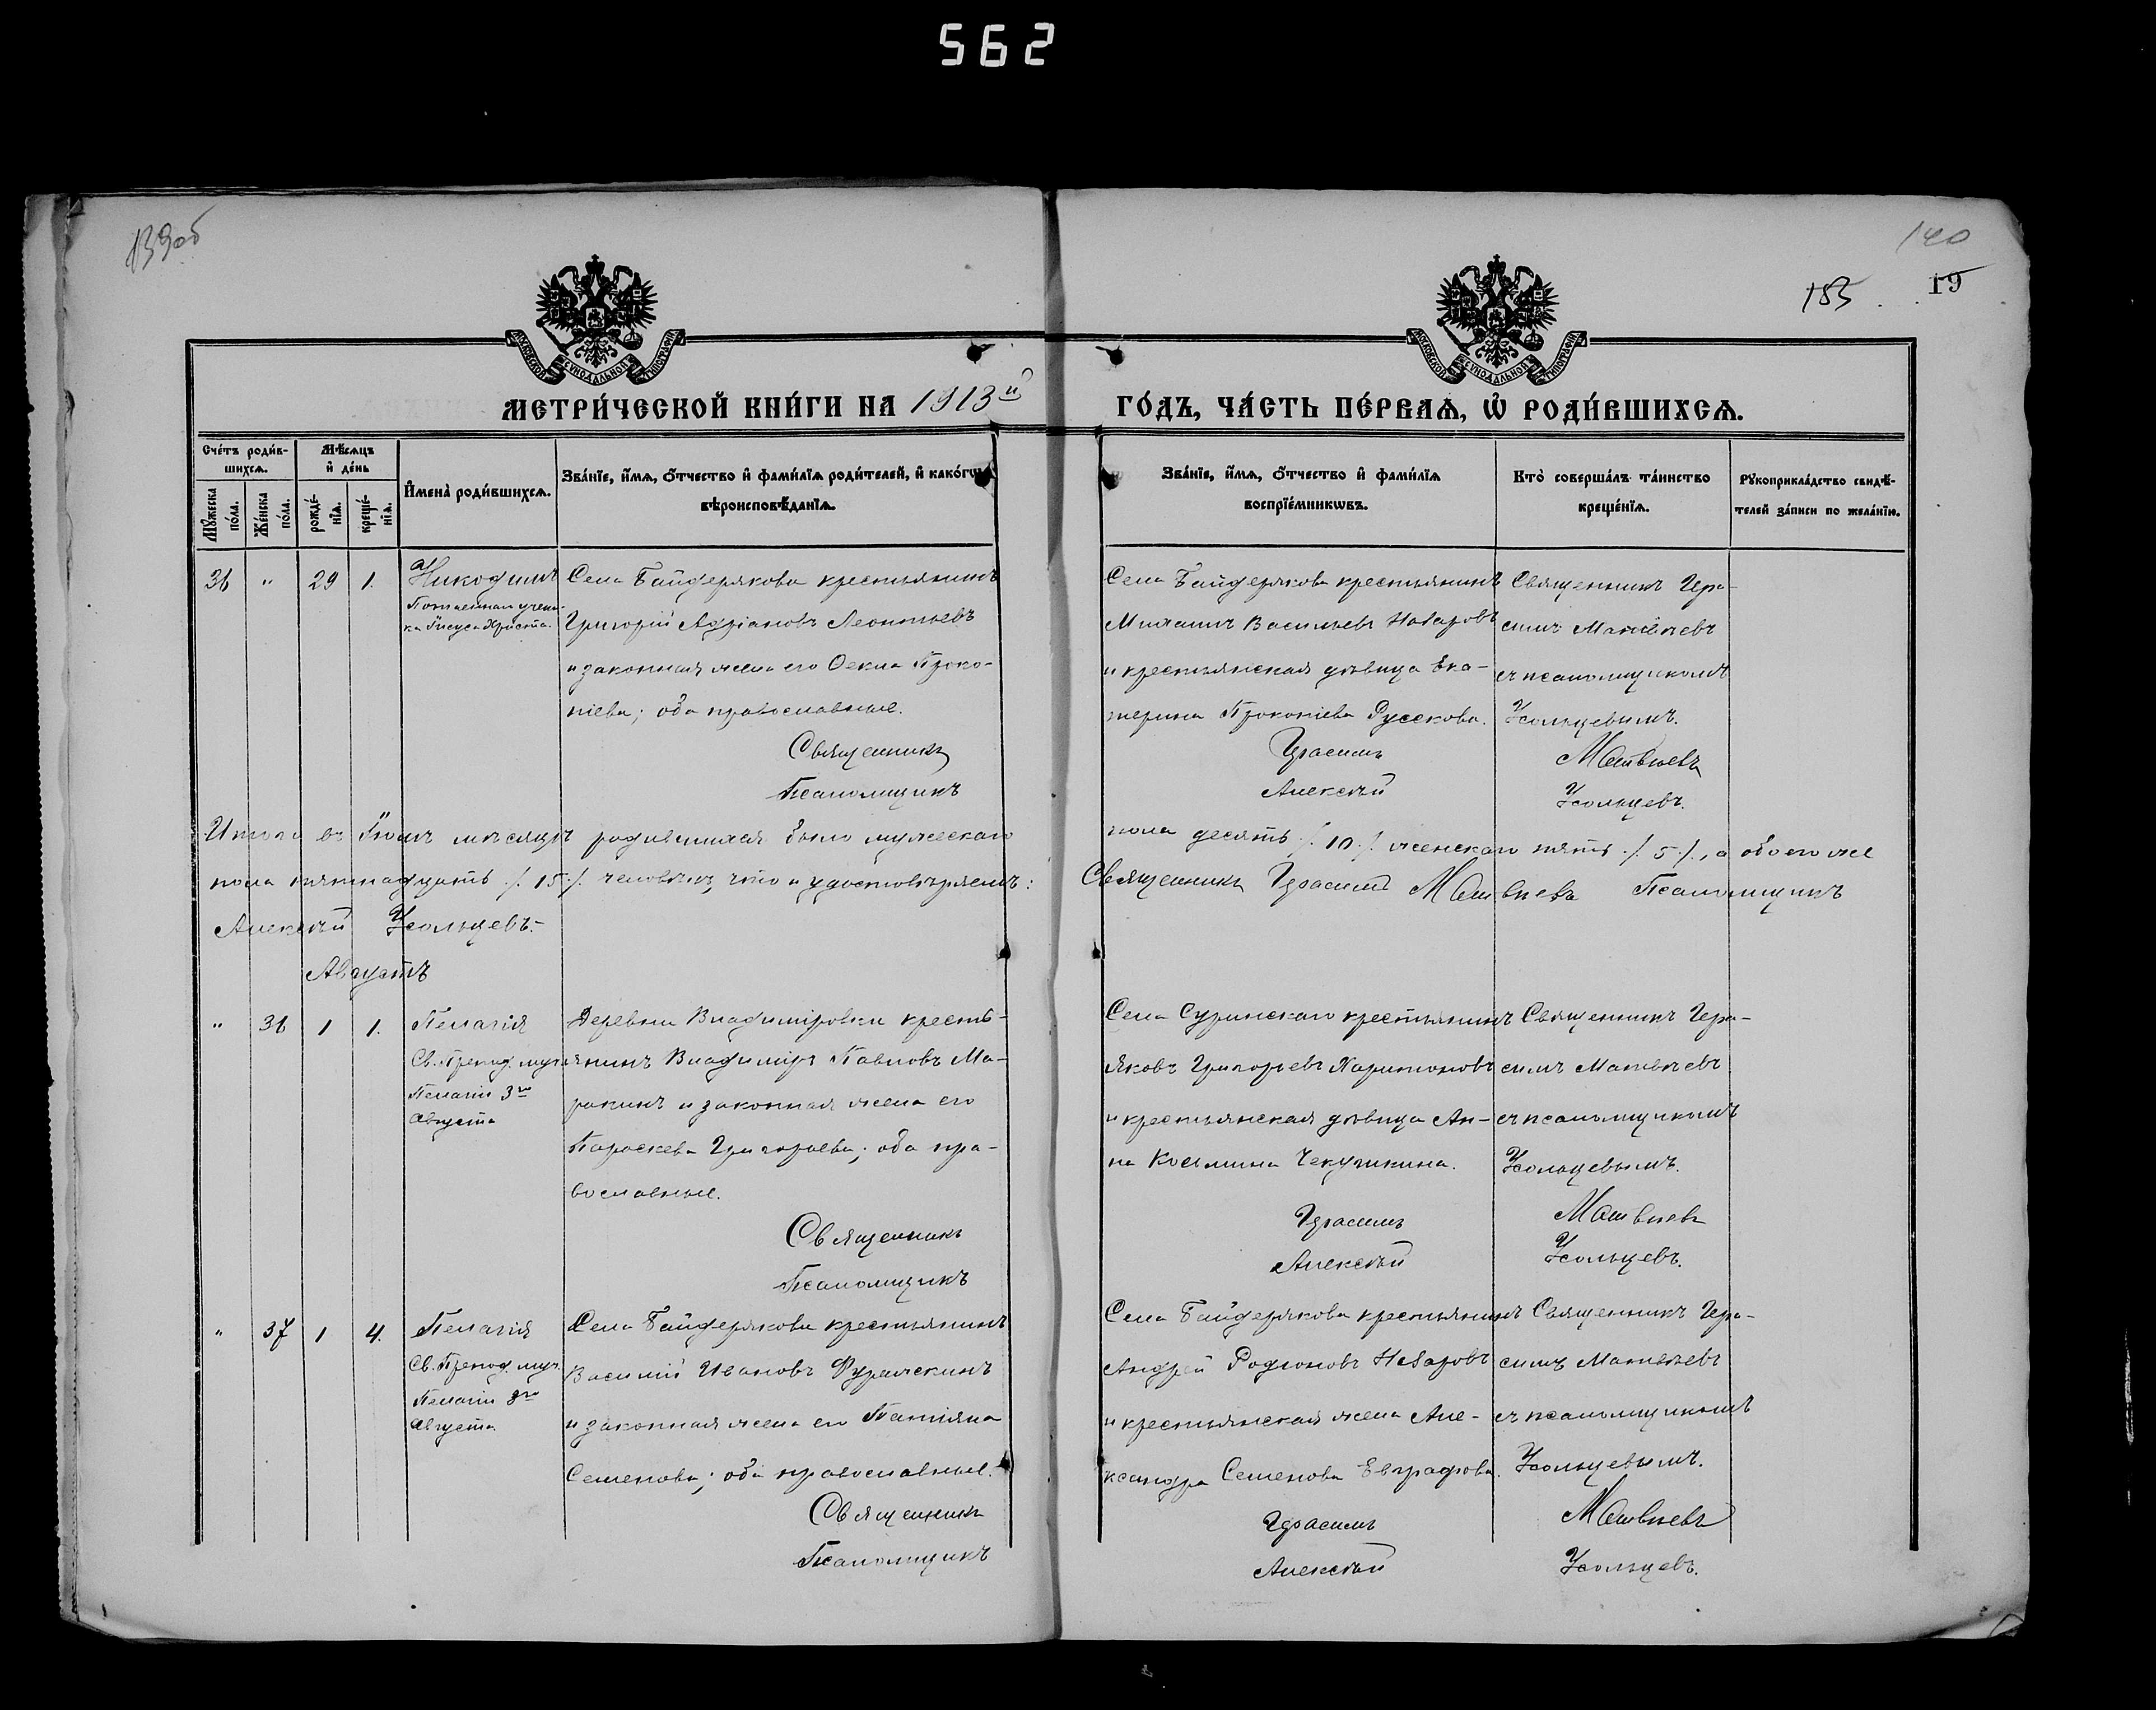 562
139об
140
185
19
МОСКОВСКОЙ СѴНОДАЛЬНОЙ ТИПОГРАФІИ
МОСКОВСКОЙ СѴНОДАЛЬНОЙ ТИПОГРАФІИ
МЕТРИ́ЧЕСКОЙ КНИ́ГИ НА 1913й ГО́ДЪ, ЧА́СТЬ ПЕ́РВАѦ, Ѡ҆ РОДИ́ВШИХСѦ.
Сче́тъ роди́в-
шихсѧ.
Мѣ́сѧцъ
и҆ де́нь
Мꙋ́жеска
по́ла.
Же́нска
по́ла.
рожде́-
нїѧ.
креще́-
нїѧ.
И҆мена̀ роди́вшихсѧ.
Зва́нїе, и҆́мѧ, ѻ҆́тчество и҆ фами́лїѧ роди́телей, и҆ како́гѡ
вѣроисповѣ́данїѧ.
Зва́нїе, и҆́мѧ, ѻ҆́тчество и҆ фами́лїѧ
воспрїе́мникѡвъ.
Кто̀ соверша́лъ та́инство
креще́нїѧ.
Рꙋкоприкла́дство свидѣ́-
телей за́писи по жела́нїю.
36 " 29 1.
Никодимъ
Потаеннаго учени-
ка Іисуса Христа.
Села Байдерякова крестьянинъ
Григорій Адріановъ Леонтьевъ
и законная жена его Ѳекла Проко-
піева; оба православные.
Священникъ
Псаломщикъ
Села Байдерякова крестьянинъ
Михаилъ Васильевъ Назаровъ
и крестьянская дѣвица Ека-
терина Прокопіева Русскова.
Герасимъ
Алексѣй
Священникъ Гера-
симъ Матвѣевъ
съ псаломщикомъ
Усольцевымъ.
Матвѣевъ
Усольцевъ.
Итого въ Іюлѣ мѣсяцѣ родившихся было мужескаго пола десять ./. 10 ./. женскаго пять ./. 5 ./., а обоего же
пола пятнадцать ./. 15 ./. человѣкъ, что и удостовѣряемъ: Священникъ Герасимъ Матвѣевъ Псаломщикъ
Алексѣй Усольцевъ.-
Августъ
" 36 1 1.
Пелагія
Св. Препод. муч.
Пелагіи 3го
Августа
Деревни Владиміровки кресть-
янинъ Владиміръ Павловъ Ма-
ракинъ и законная жена его
Параскева Григорьева; оба пра-
вославные.
Священникъ
Псаломщикъ
Села Суринскаго крестьянинъ
Яковъ Григорьевъ Харитоновъ
и крестьянская дѣвица Ан-
на Косьмина Чекушкина.
Герасимъ
Алексѣй
Священникъ Гера-
симъ Матвѣевъ
съ псаломщикомъ
Усольцевымъ.
Матвѣевъ
Усольцевъ.
" 37 1 4.
Пелагія
Св. Препод. муч.
Пелагіи 3го
Августа
Села Байдерякова крестьянинъ
Василій Ивановъ Фуражкинъ
и законная жена его Татіана
Семенова; оба православные.
Священникъ
Псаломщикъ
Села Байдерякова крестьянинъ
Андрей Родіоновъ Назаровъ
и крестьянская жена Але-
ксандра Семенова Евграфова.
Герасимъ
Алексѣй
Священникъ Гера-
симъ Матвѣевъ
съ псаломщикомъ
Усольцевымъ.
Матвѣевъ
Усольцевъ.